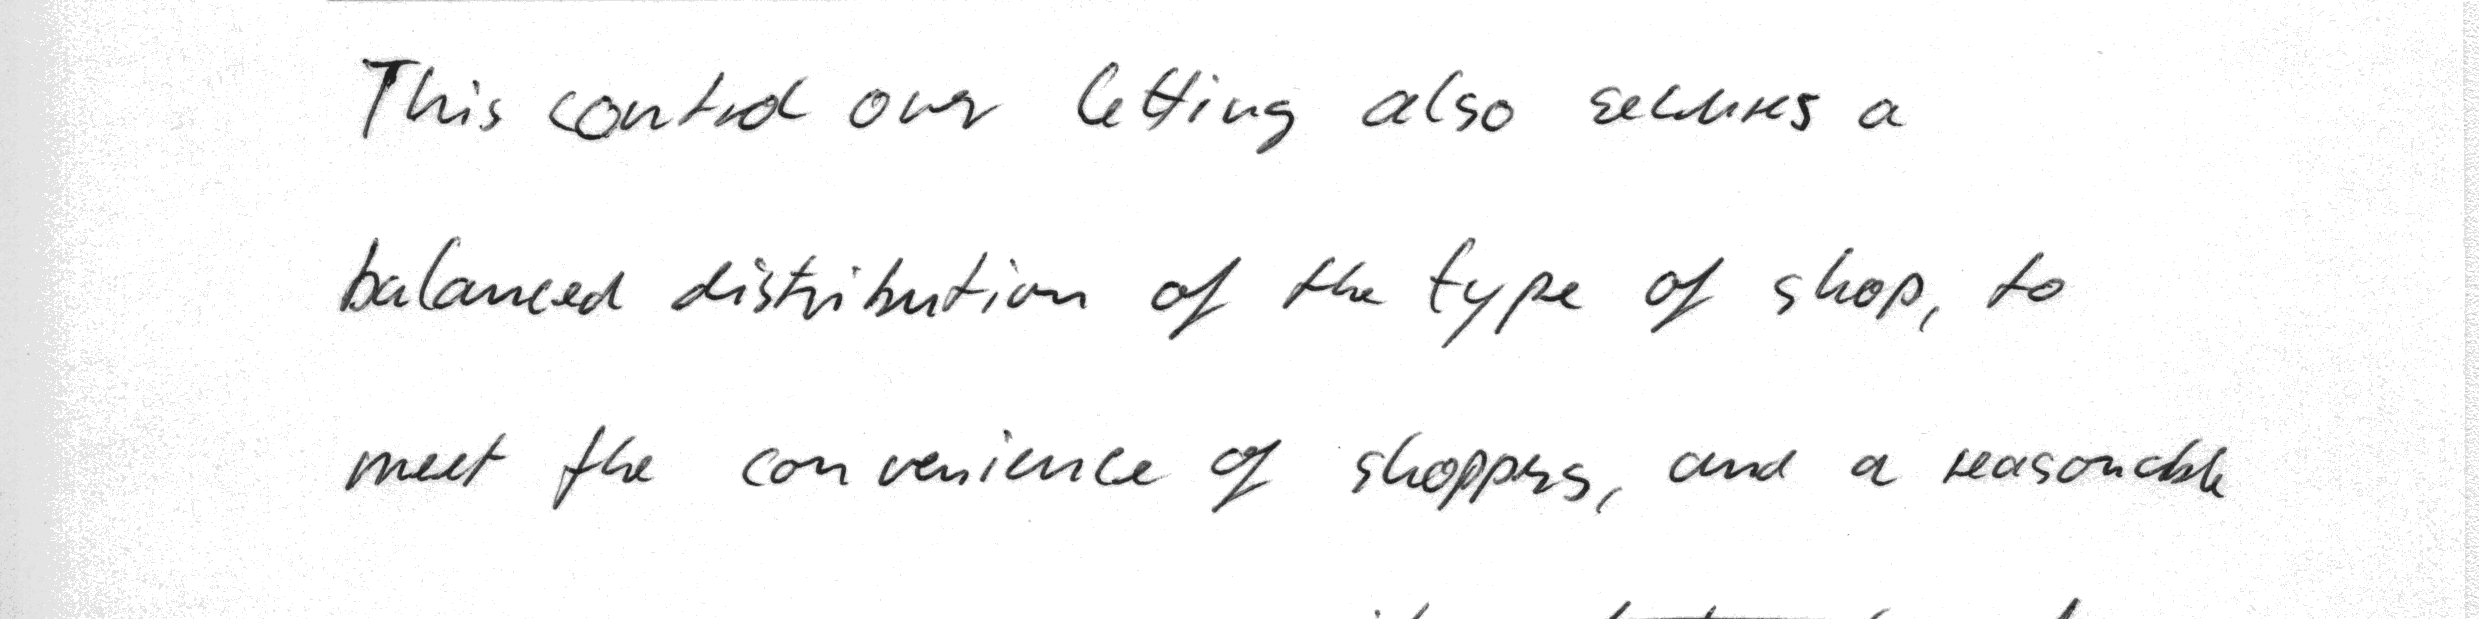 This control over letting also secures a
balanced distribution of the type of shop, to
meet the convenience of shoppers, and a reasonable